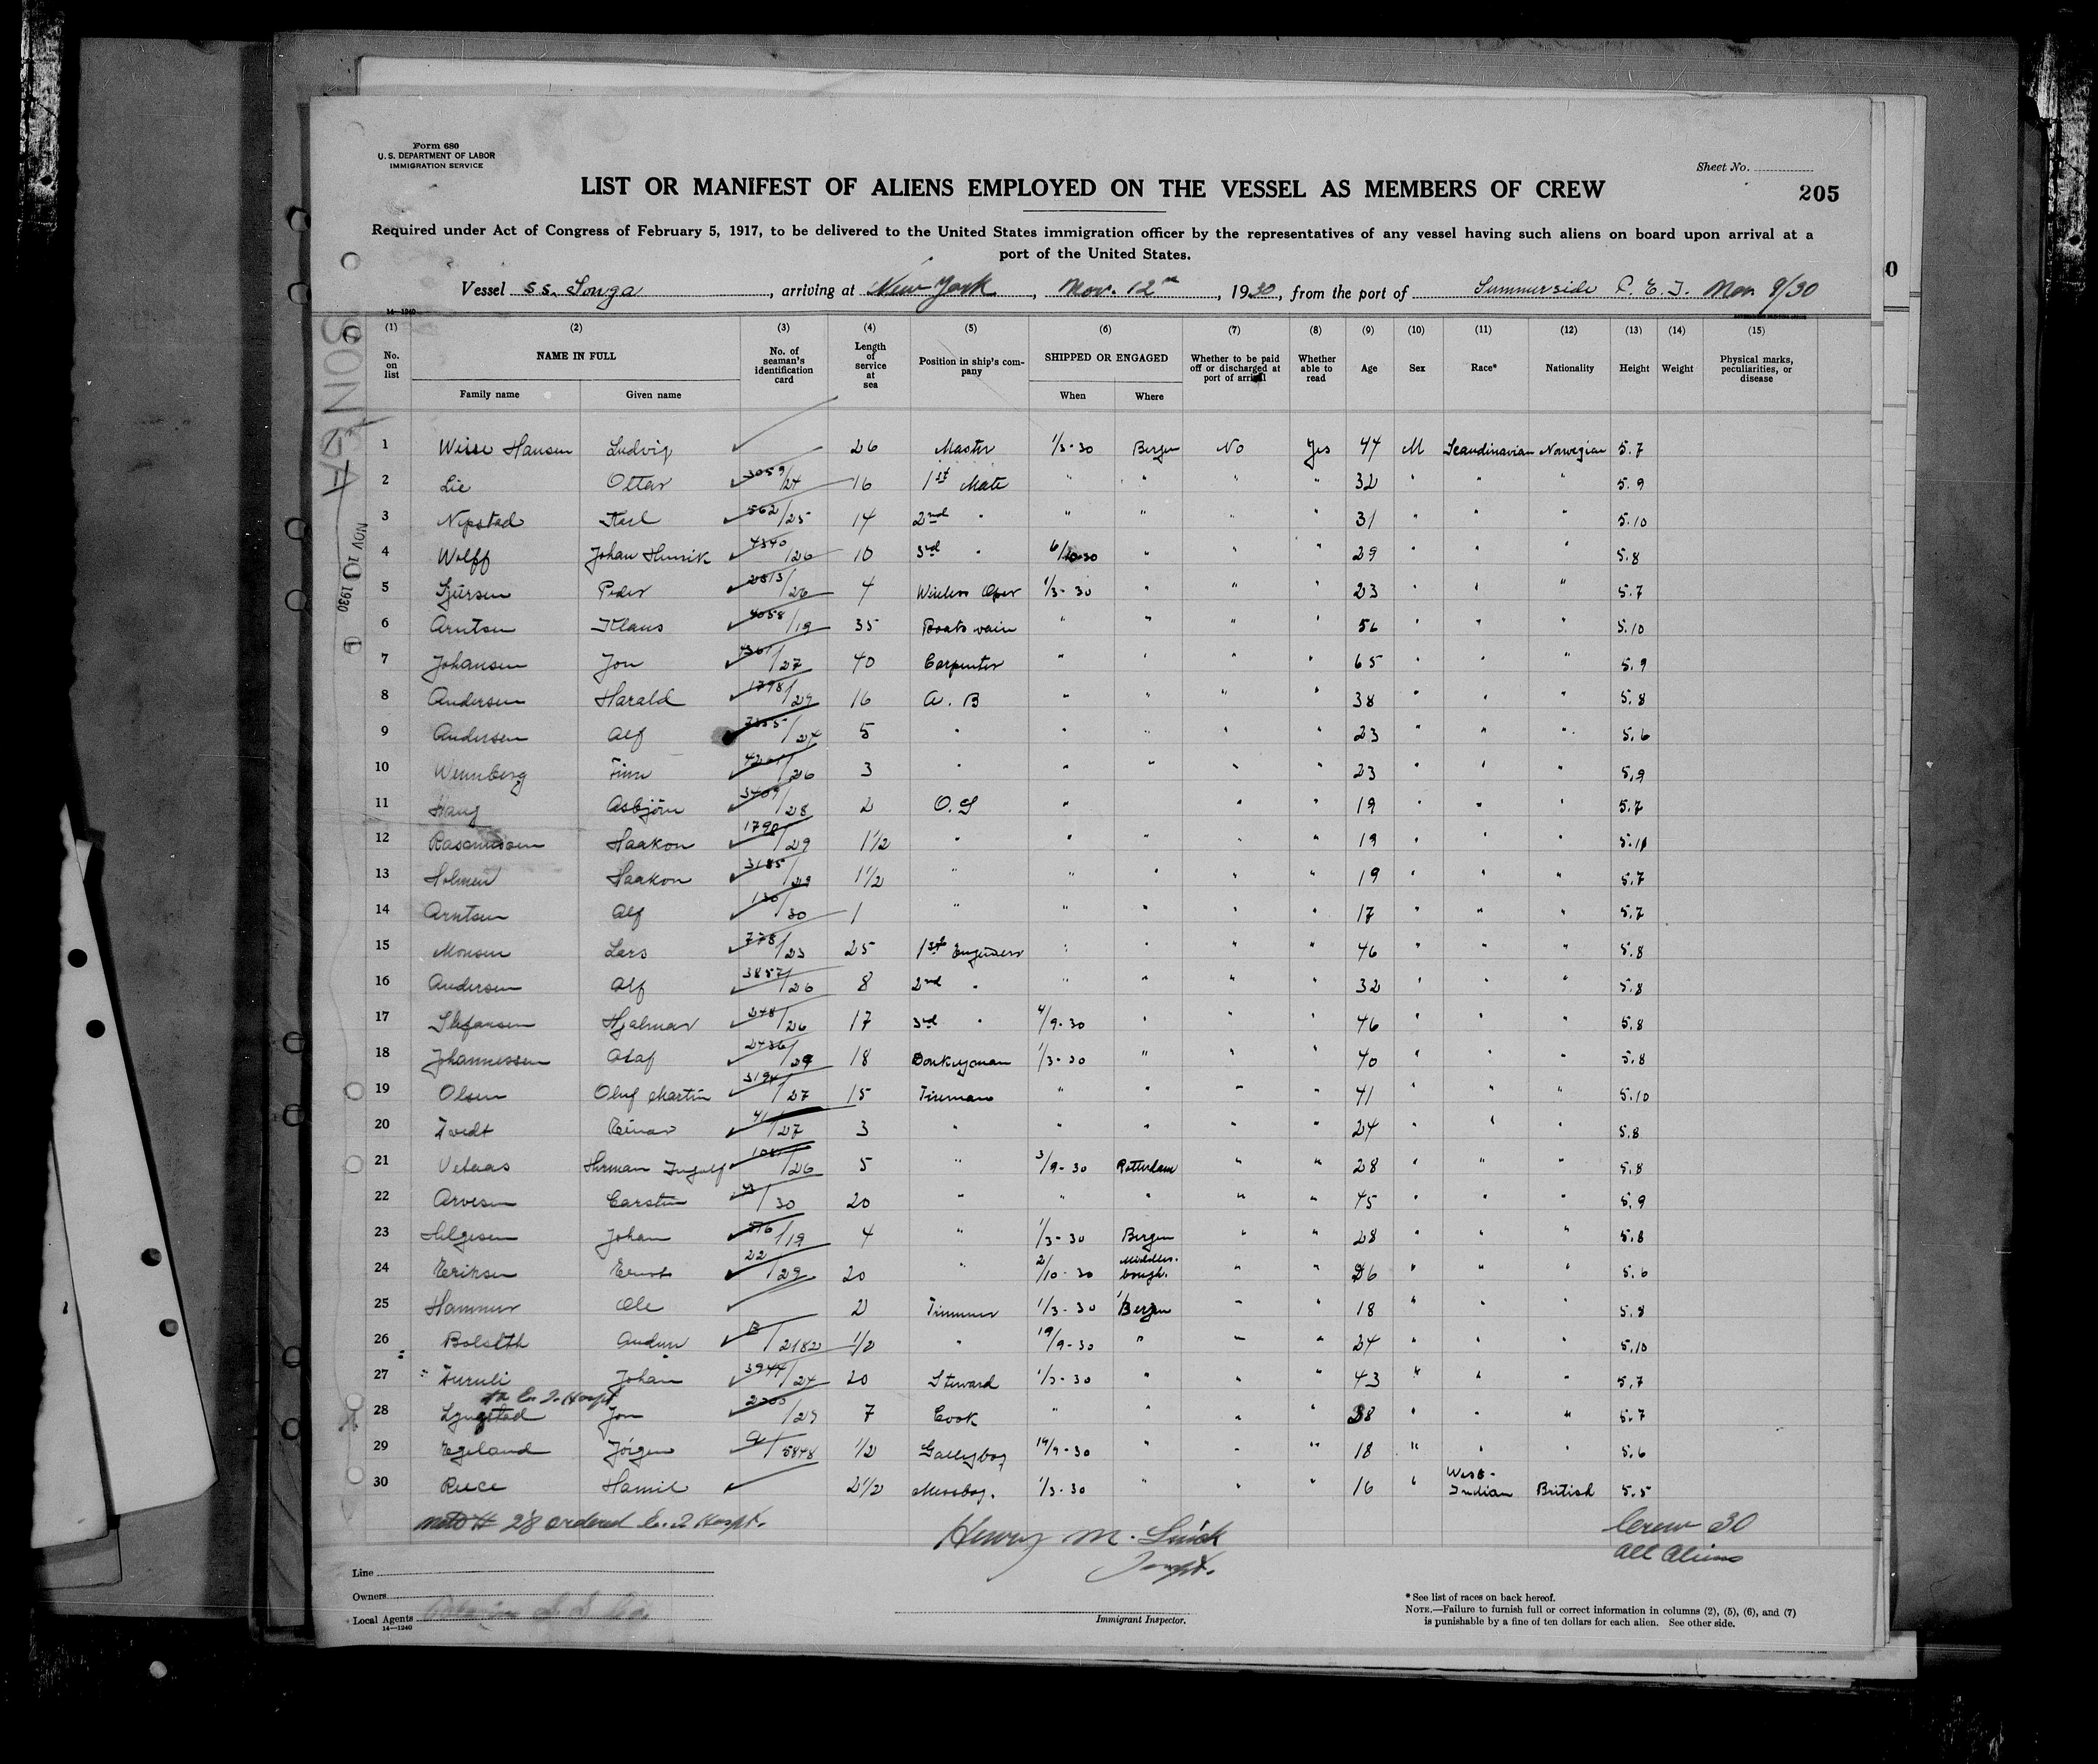 Form 680
U. S. DEPARTMENT OF LABOR
IMMIGRATION SERVICE
Sheet No.
LIST OR MANIFEST OF ALIENS EMPLOYED ON THE VESSEL AS MEMBERS OF CREW
205
Required under Act of Congress of February 5, 1917, to be delivered to the United States immigration officer by the representatives of any vessel having such aliens on board upon arrival at a
port of the United States.
Vessel S.S. Songa, arriving at New York, Nov. 12th, 1930, from the port of Summerside P. E. I. Nov 8/30
14—1240
(1) (2) (3) (4) (5) (6) (7) (8) (9) (10) (11) (12) (13) (14) (15)
No. on list NAME IN FULL No. of seaman's identification card Length of service at sea Position in ship's company SHIPPED OR ENGAGED Whether to be paid off or discharged at port of arrival Whether able to read Age Sex Race* Nationality Height Weight Physical marks, peculiarities, or disease
Family name Given name When Where
1 Weise Hansen Ludvig 26 Master 1/3-30 Bergen No Yes 44 M Scandinavian Norwegian 5.7
2 Lie Ottar 3059/24 16 1st Mate " " " " 32 " " " 5.9
3 Nipstad Karl 562/25 14 2nd " " " " " 31 " " " 5.10
4 Wolff Johan Henrik 4340/26 10 3rd " 6/10-30 " " " 29 " " " 5.8
5 Sjursen Peder 2813/26 4 Wireless Oper 1/3-30 " " " 23 " " " 5.7
6 Arntsen Klaus 4058/19 35 Boatswain " " " " 56 " " " 5.10
7 Johansen Jon /27 40 Carpenter " " " " 65 " " " 5.9
8 Andersen Harald 1798/29 16 A. B " " " " 38 " " " 5.8
9 Andersen Alf /24 5 " " " " " 23 " " " 5.6
10 Wennberg Finn /26 3 " " " " " 23 " " " 5.9
11 Haug Asbjörn 3409/28 2 O.S " " " 19 " " " 5.7
12 Rasmussen Haakon 1790/29 1 1/2 " " " " " 19 " " "
13 Holmen Haakon 3185/29 1 1/2 " " " " " 19 " " " 5.7
14 Arntsen Alf 130/30 1 " " " " " 17 " " " 5.7
15 Monsen Lars 778/23 25 1st Engineer " " " " 46 " " " 5.8
16 Andersen Alf 3857/26 8 2nd " " " " " 32 " " " 5.8
17 Stefansen Hjalmar 248/26 17 3rd " 4/9-30 " " " 46 " " " 5.8
18 Johannessen Olaf 2436/29 18 Donkeyman 1/3-30 " " " 40 " " " 5.8
19 Olsen Oluf Martin 3194/27 15 Fireman " " " " 41 " " " 5.10
20 Tvedt Einar 41/27 3 " " " " " 24 " " " 5.8
21 Vetaas Herman Ingolf /26 5 " 3/9-30 Rotterdam " " 28 " " " 5.8
22 Arvesen Carsten 43/30 20 " " " " " 45 " " " 5.9
23 Helgesen Johan 576/19 4 " 1/3-30 Bergen " " 28 " " " 5.8
24 Eriksen Ernst 22/29 20 " 2/10-30 Middlesbough. " " 26 " " " 5.6
25 Hammer Ole 2 Trimmer 1/3-30 Bergen " " 18 " " " 5.8
26 Audun B/2182 1/2 " 19/9-30 " " " 24 " " " 5.10
27 Furuli Johan 3944/24 20 Steward 1/3-30 " " 43 " " " 5.7
to E. I. Hospt
28 Lyngstad Jon /29 7 Cook " " " " 38 " " " 5.7
29 Egeland Jörgen a/5848 1/2 Galleyboy 14/9-30 " " " 18 " " " 5.6
30 Reece Hamil 2 1/2 Messboy. 1/3-30 " " 16 " West-Indian British 5.5
Note # 28 ordered E. I. Hospt.
Henry M.
Inspt.
Crew 30
All Aliens
Line
Owners
Local Agents S S Co.
14—1240
Immigrant Inspector.
* See list of races on back hereof.
NOTE.—Failure to furnish full or correct information in columns (2), (5), (6), and (7)
is punishable by a fine of ten dollars for each alien. See other side.
SONGA
NOV 10 1930